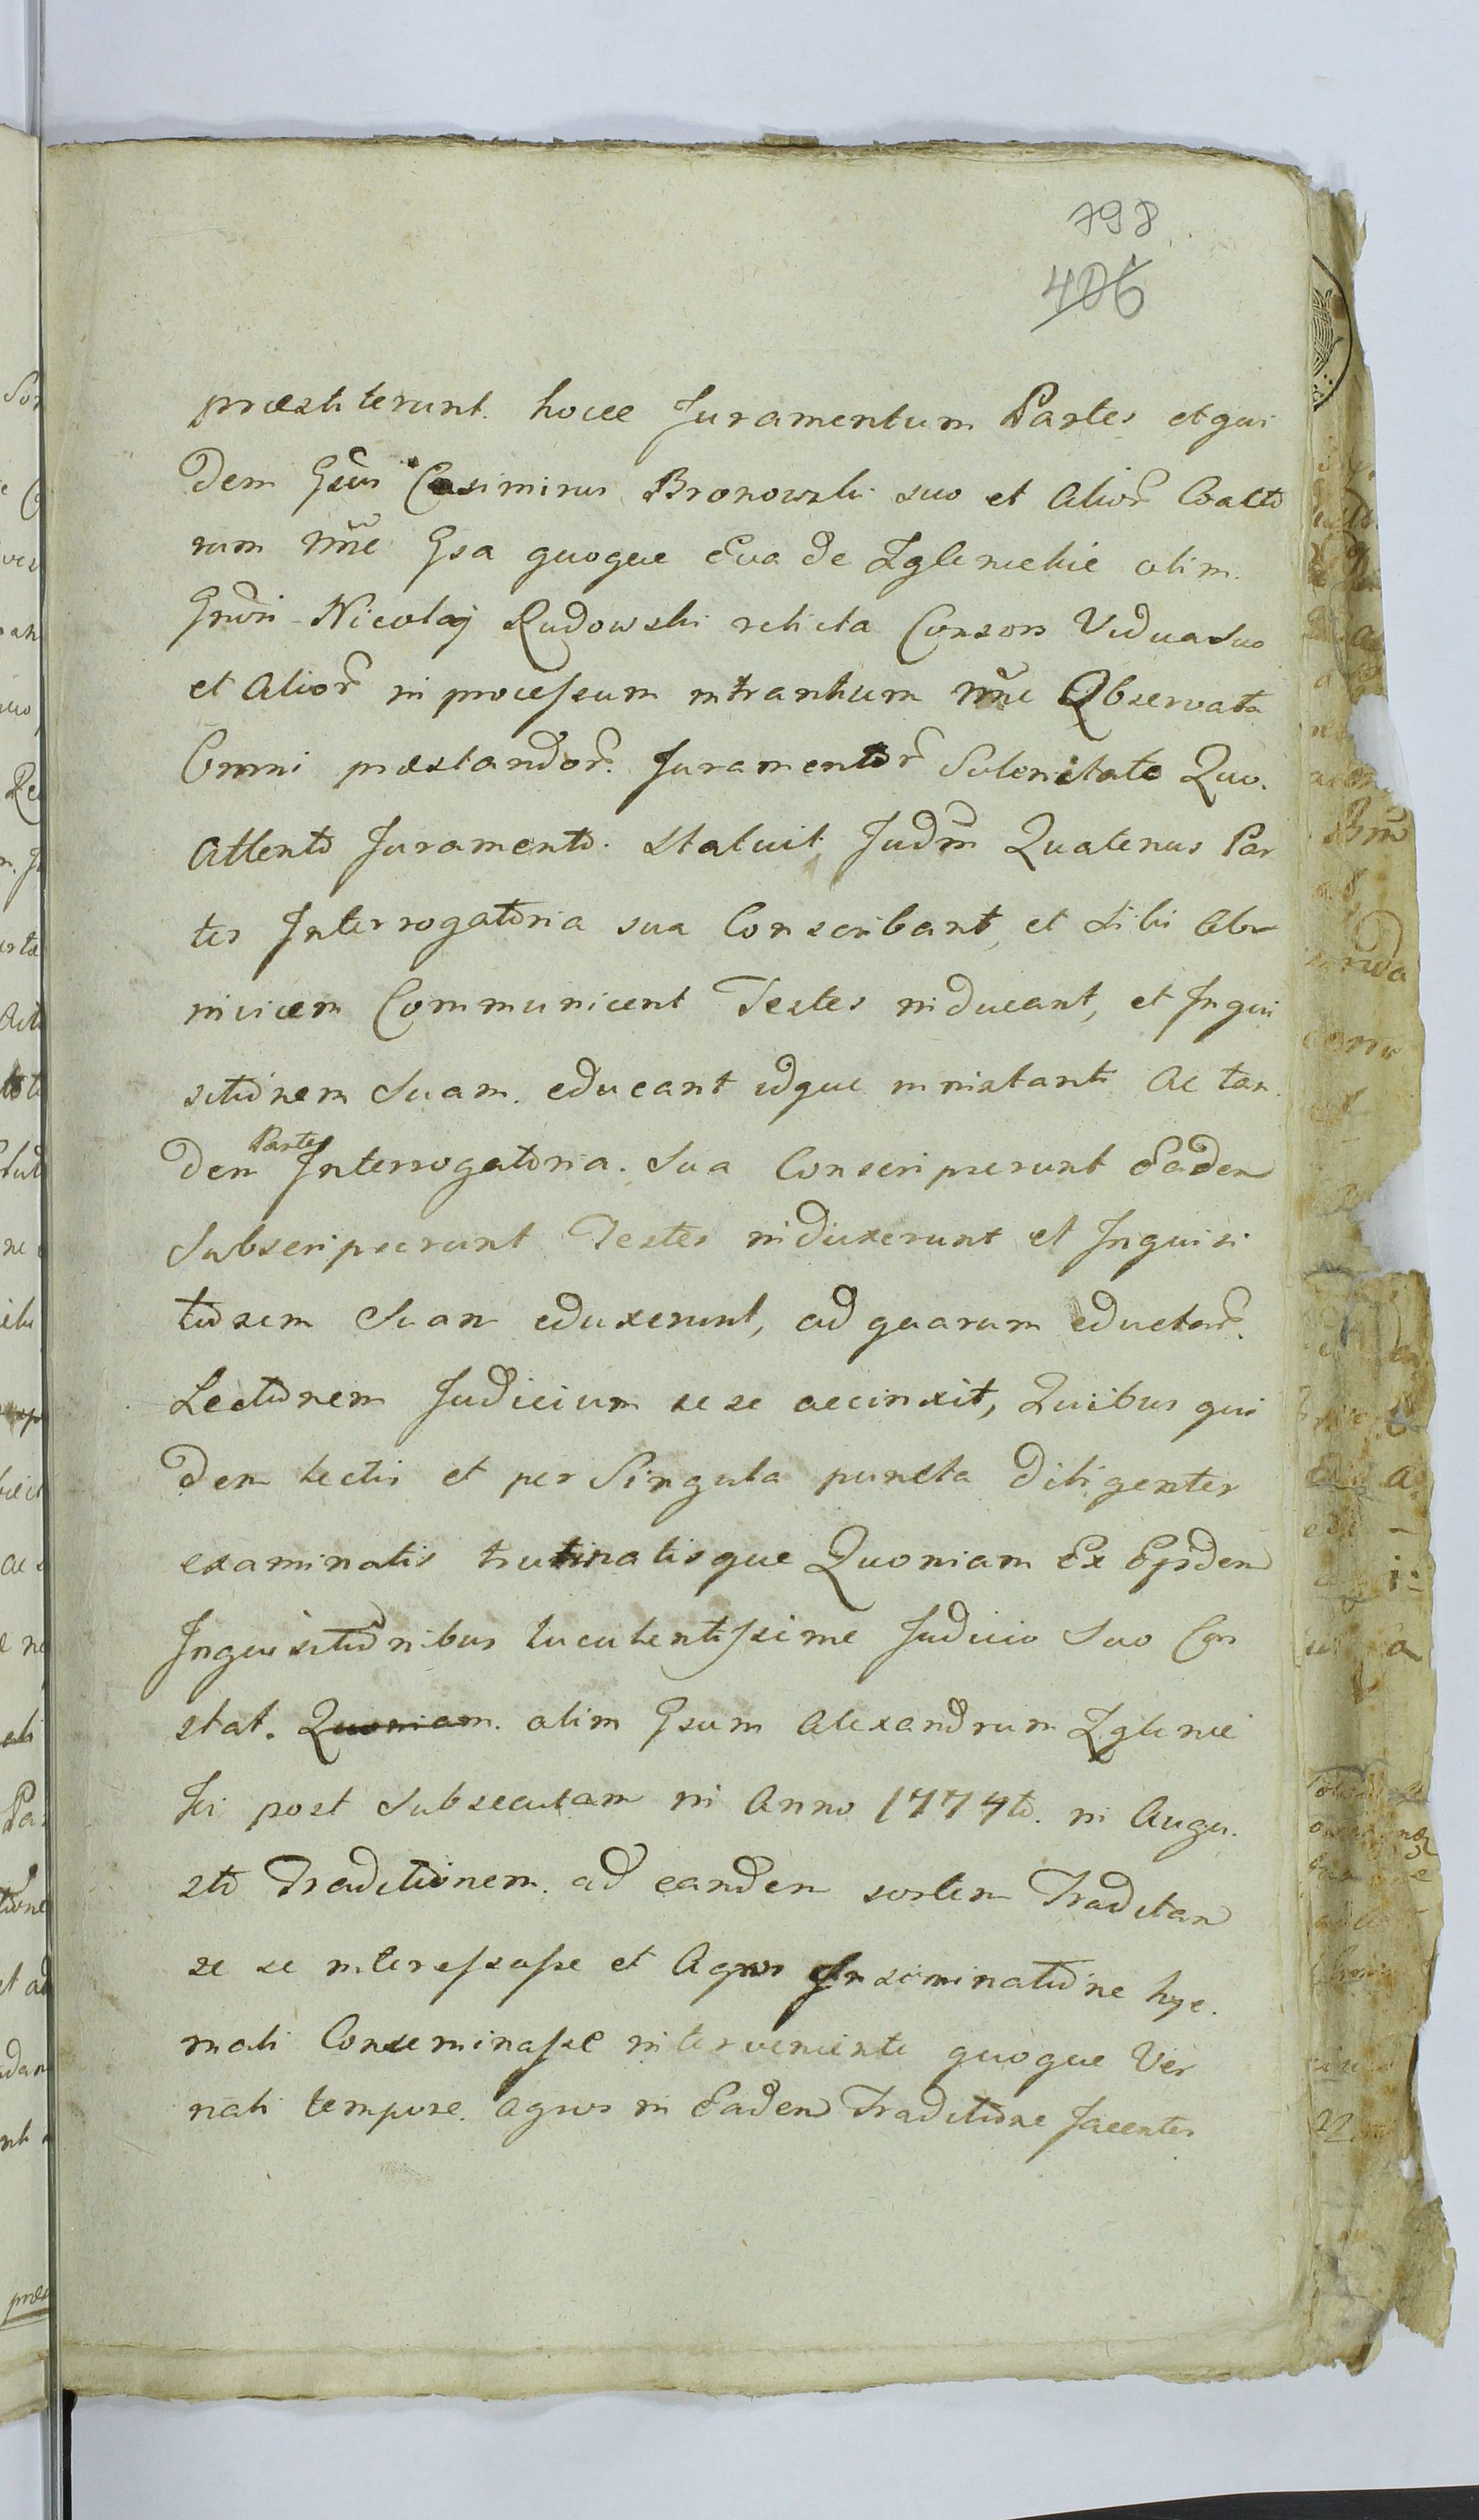 798
406
præstiterunt hocce Juramentum Partes et qui
dem Gsus Casimirus Bronowski suo et Alior̃ Coacto
rum nñe Gsa quoque Eva de Zglenickie olim
Gnõri Nicolaj Rudowski relicta Consors Vidua suo
et Alior̃ in processum intrantium nñe Observata
Omni præstandor̃ Juramentor̃ Solenitate Quo
Attento Juramento statuit Judm̃ Quatenus Par
tes Interrogatoria sua Conscribant, et sibi Ab
invicem Communicent Testes inducant, et Inqui
sitionem Suam educant idque in instanti Ac tan
dem Partes Interrogatoria Sua Conscripserunt Eadem
Subscripserunt Testes induxerunt et Inquisi
tionem Suam eduxerunt, ad quarum eductar̃
Lectionem Judicium sese accinxit, Quibus qui
dem lectis et per Singula puncta diligenter
examinatis trutinatisque Quoniam Ex Ejsdem
Inquisitionibus luculentissime Judicio Suo Con
stat. Quoniam olim Gsum Alexandrum Zglenic
ki post Subsecutam in Anno 1774to in Augu
sto Traditionem ad eandem sortem Traditam
se se interessasse et Agros Inseminatione hye
mali Conseminasse interveniente quoque Ver
nali tempore agros in Eadem Traditione Jacentes